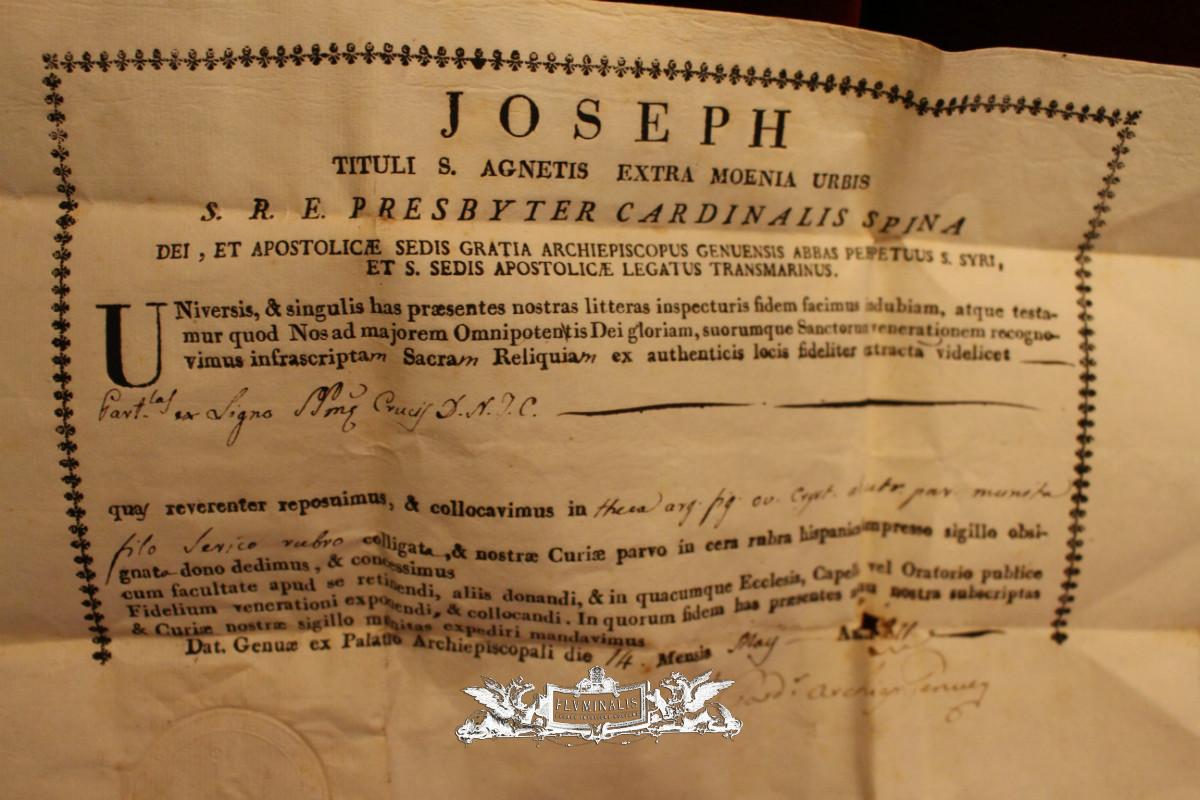 JOSEPH
TITULI S. AGNETIS EXTRA MOENIA URBIS
S. R. E. PRESBYTER CARDINALIS SPINA
DEI, ET APOSTOLICÆ SEDIS GRATIA ARCHIEPISCOPUS GENUENSIS ABBAS PERPETUUS S. SYRI,
ET S. SEDIS APOSTOLICÆ LEGATUS TRANSMARINUS.
UNiversis, & singulis has præsentes nostras litteras inspecturis fidem facimus indubiam, atque testa-
mur quod Nos ad majorem Omnipotentis Dei gloriam, suorumque Sanctorum venerationem recogno-
vimus infrascriptam Sacram Reliquiam ex authenticis locis fideliter extracta videlicet
Part.las ex Ligno Crucis D. N. J. C.
quas reverenter reposuimus, & collocavimus in theca arg. fig. ov. cryst. par. munita
filo serico rubro colligata, & nostræ Curiæ parvo in cera rubra hispanica impresso sigillo obsi-
gnata dono dedimus, & concessimus
cum facultate apud se retinendi, aliis donandi, & in quacumque Ecclesia, Capella vel Oratorio publice
Fidelium venerationi exponendi, & collocandi. In quorum fidem has præsentes nostra subscriptas
& Curiæ nostræ sigillo munitas expediri mandavimus
Dat. Genuæ ex Palatio Archiepiscopali die 14 Mensis May An.
FLVMINALIS